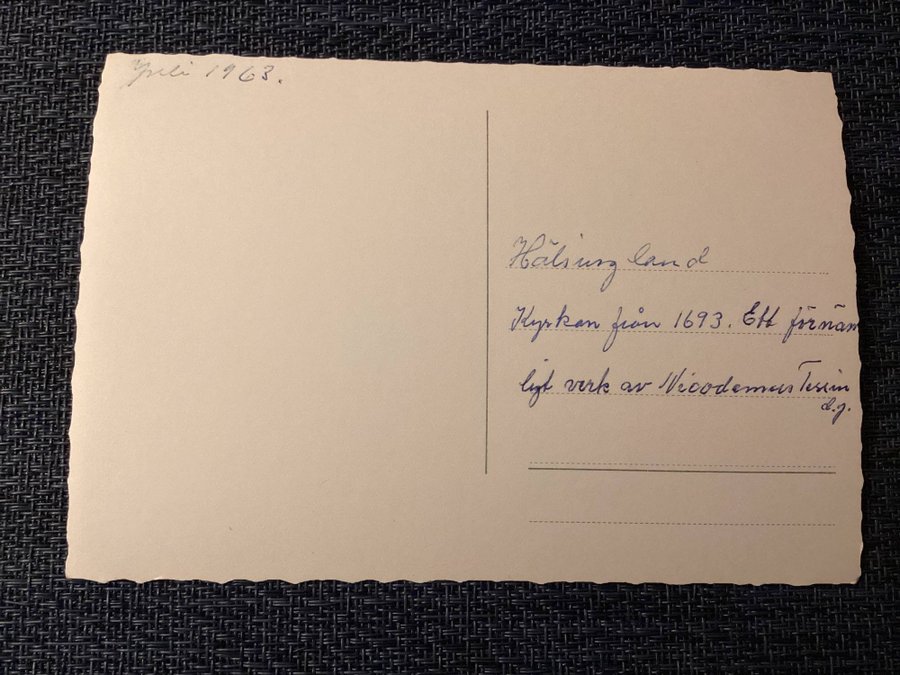 Juli 1963.
Hälsingland
Kyrkan från 1693. Ett förnäm
ligt verk av Nicodemus Tessin
d.y.